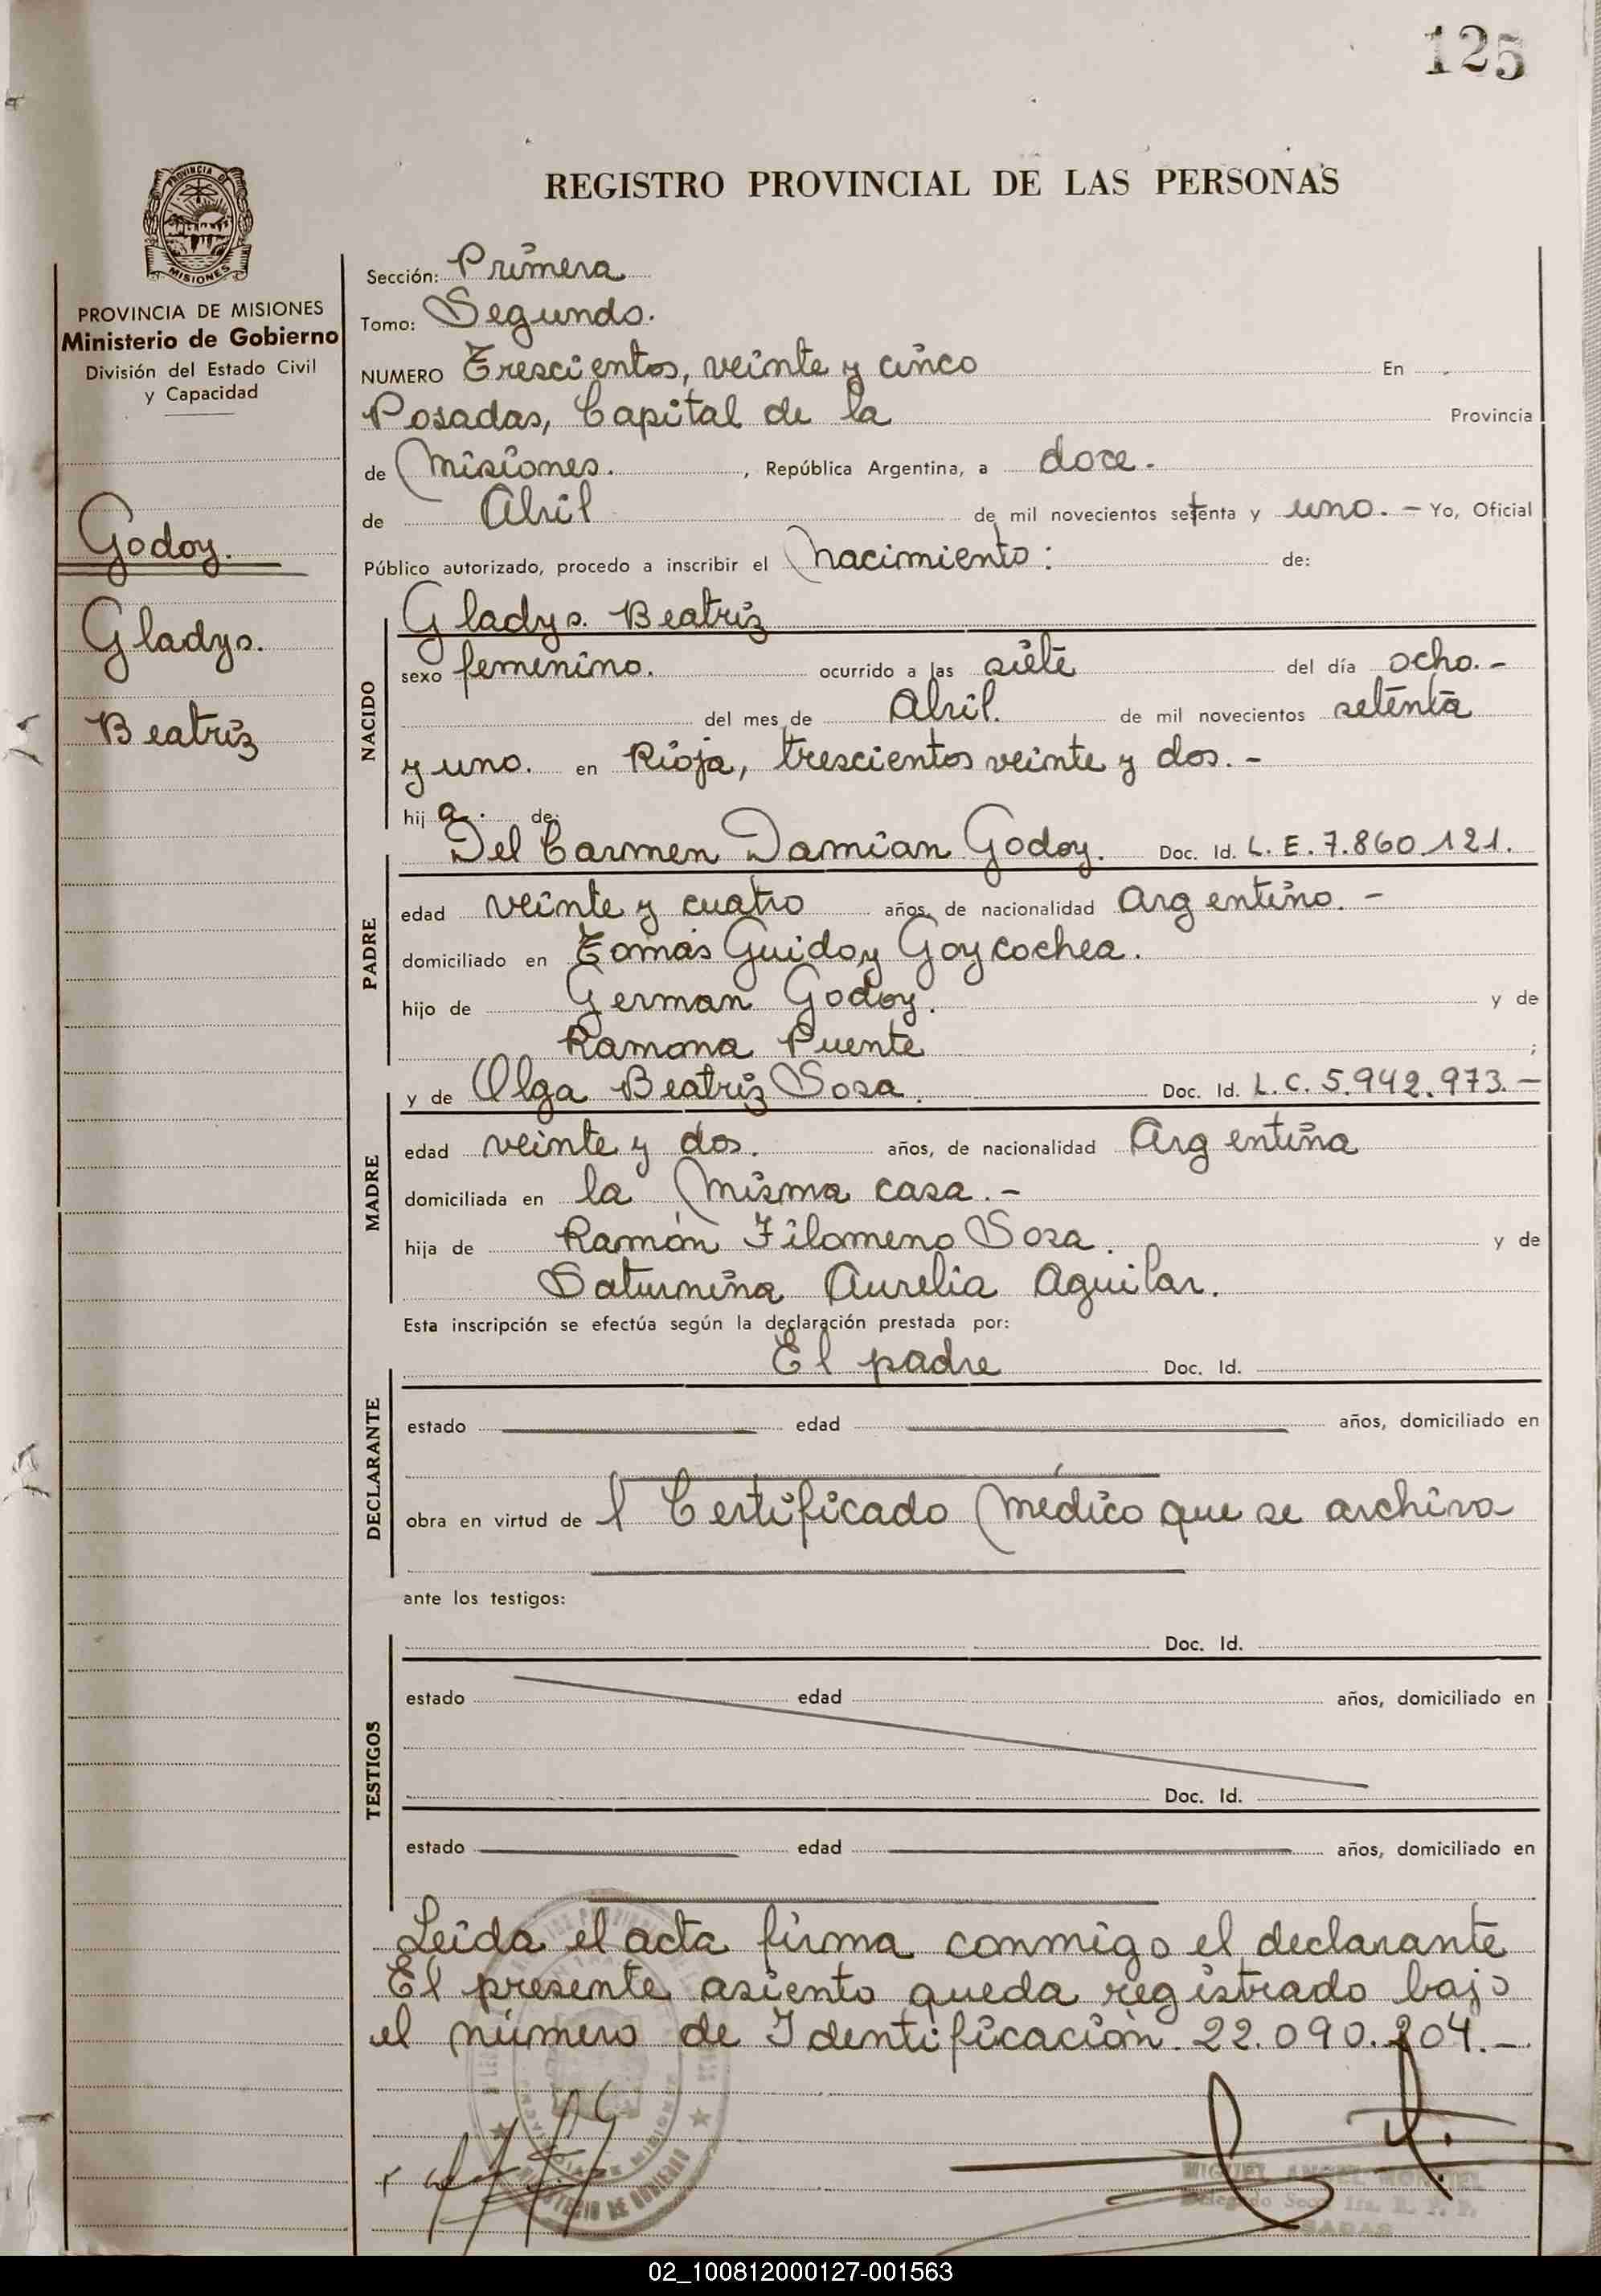 125
REGISTRO PROVINCIAL DE LAS PERSONAS
PROVINCIA DE MISIONES
Ministerio de Gobierno
División del Estado Civil
y Capacidad
Godoy.
Gladys.
Beatriz
Sección: Primera
Tomo: Segundo.
NUMERO Trescientos, veinte y cinco En
Posadas, Capital de la Provincia
de Misiones. , República Argentina, a doce.
de Abril de mil novecientos setenta y uno. - Yo, Oficial
Público autorizado, procedo a inscribir el Nacimiento: de:
NACIDO
Gladys. Beatriz
sexo femenino. ocurrido a las siete del día ocho.-
del mes de Abril. de mil novecientos setenta
y uno. en Rioja, trescientos veinte y dos.-
hij a. de:
PADRE
Del Carmen Damian Godoy. Doc. Id. L.E.7.860.121.
edad veinte y cuatro años, de nacionalidad Argentino. -
domiciliado en Tomás Guido y Goycochea.
hijo de German Godoy. y de
Ramona Puente ;
y de Olga Beatriz Sosa. Doc. Id. L.C.5.942.973.-
MADRE
edad veinte y dos. años, de nacionalidad Argentina
domiciliada en la Misma casa.-
hija de Ramón Filomeno Sosa. y de
Saturnina Aurelia Aguilar.
Esta inscripción se efectúa según la declaración prestada por:
DECLARANTE
El padre Doc. Id.
estado edad años, domiciliado en
obra en virtud de l Certificado Médico que se archiva
ante los testigos:
TESTIGOS
Doc. Id.
estado edad años, domiciliado en
Doc. Id.
estado edad años, domiciliado en
Leida el acta firma conmigo el declarante
El presente asiento queda registrado bajo
el número de Identificación 22.090.204.-
MIGUEL ANGEL
02_100812000127-001563